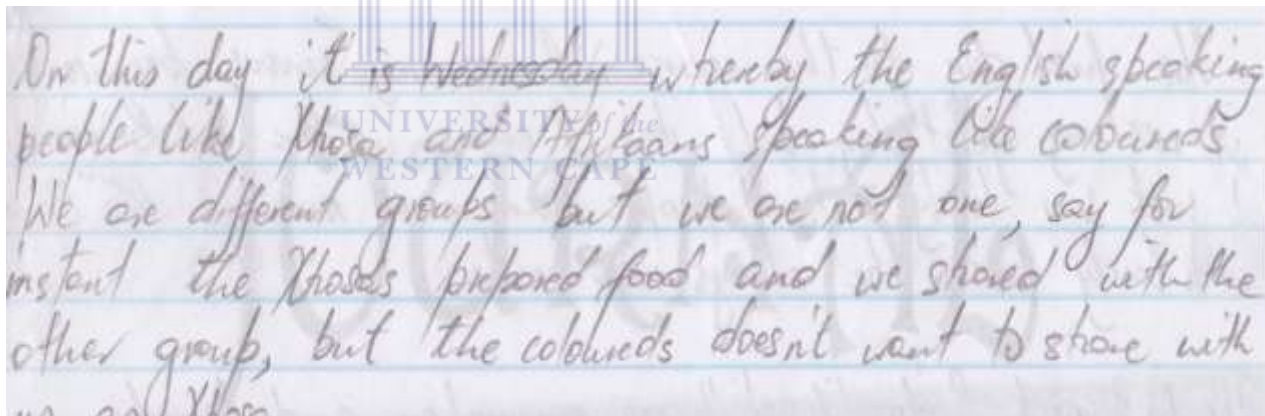 On this day it is Wednesday whereby the English speaking
UNIVERSITY of the
people like Xhosa and Afrikaans speaking like coloureds
WESTERN CAPE
We are different groups but we are not one, say for
instant the Xhosas prepared food and we shared with the
other group, but the coloureds doesn't want to share with
us as Xhosa